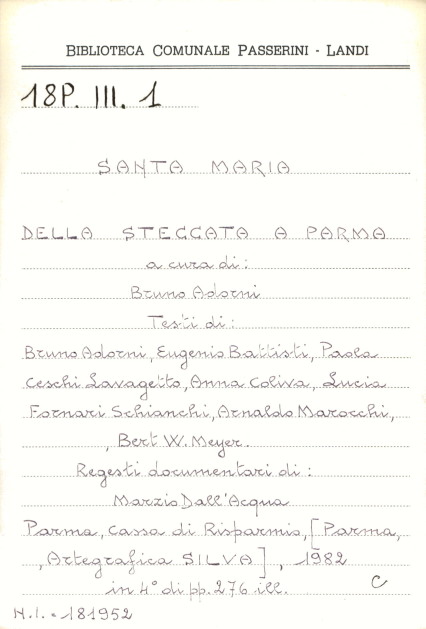 BIBLIOTECA COMUNALE PASSERINI - LANDI
18P. III. 1
SANTA MARIA
DELLA STECCATA A PARMA
a cura di:
Bruno Adorni
Testi di:
Bruno Adorni, Eugenio Battisti, Paola
Ceschi Lavagetto, Anna Coliva, Lucia
Fornari Schianchi, Arnaldo Marocchi,
, Bert W. Meyer.
Regesti documentari di:
Marzio Dall'Acqua
Parma, Cassa di Risparmio, [Parma,
, Artegrafica SILVA], 1982
in 4° di pp. 276 ill. C
N.I. - 181952